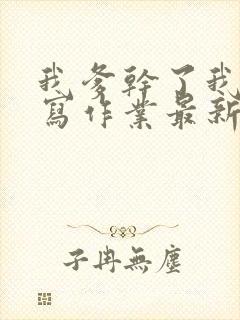 我爹幹了我
寫作業最新
子冉無塵